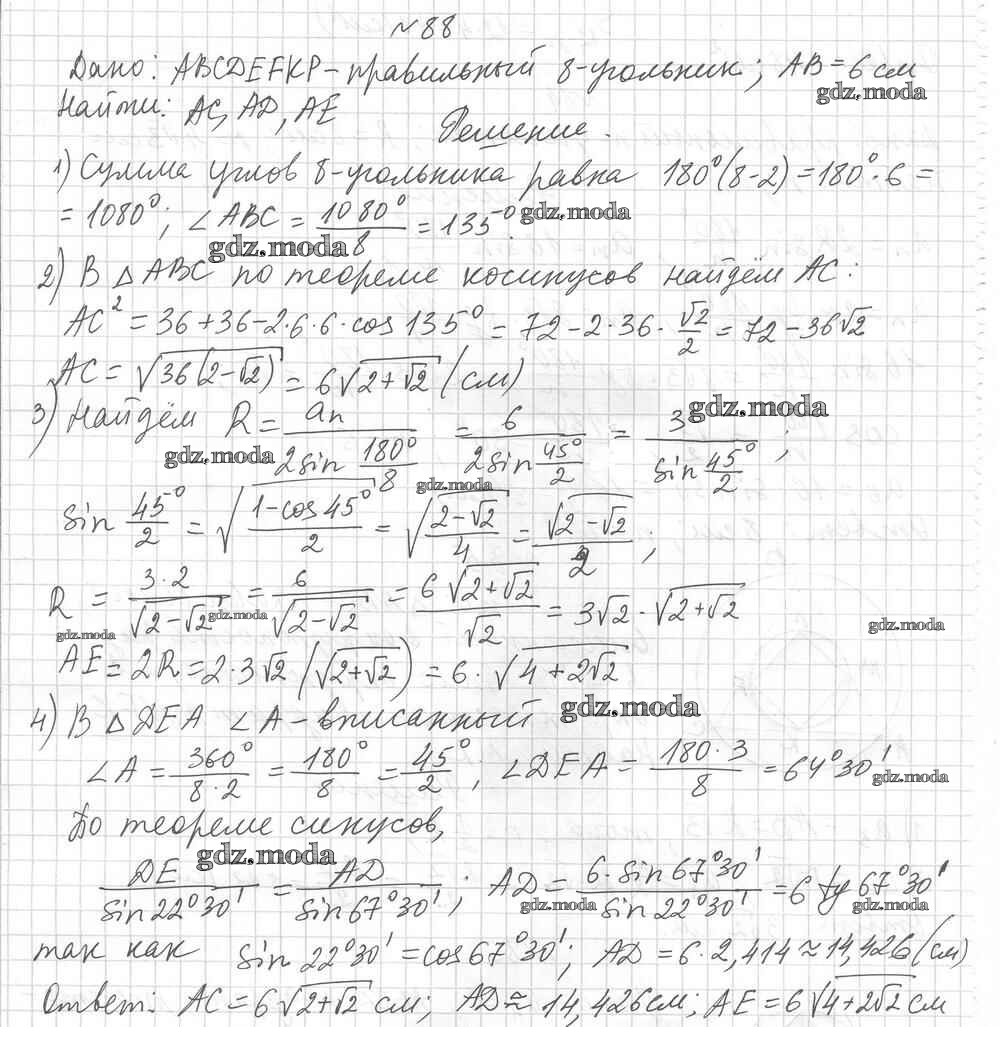 №88
Дано: ABCDEFKP – правильный 8-угольник; AB = 6 см
gdz.moda
Найти: AC, AD, AE
Решение.
1) Сумма углов 8-угольника равна 180°(8-2) = 180°·6 =
= 1080°; ∠ABC = 1080°/8 = 135°.
gdz.moda
gdz.moda
2) В △ABC по теореме косинусов найдём AC:
AC² = 36 + 36 - 2·6·6·cos 135° = 72 - 2·36·√2/2 = 72 - 36√2
AC = √(36(2-√2)) = 6√(2+√2) (см)
3) Найдём R = an/(2sin 180°/8) = 6/(2sin 45°/2) = 3/(sin 45°/2);
gdz.moda
gdz.moda
gdz.moda
sin 45°/2 = √((1-cos 45°)/2) = √((2-√2)/4) = √(2-√2)/2;
R = 3·2/√(2-√2) = 6/√(2-√2) = 6√(2+√2)/√2 = 3√2·√(2+√2)
gdz.moda
gdz.moda
gdz.moda
AE = 2R = 2·3√2 (√(2+√2)) = 6·√(4+2√2)
4) В △DEA ∠A – вписанный
gdz.moda
∠A = 360°/(8·2) = 180°/8 = 45°/2; ∠DEA = 180·3/8 = 64°30'
gdz.moda
По теореме синусов,
gdz.moda
DE/sin 22°30' = AD/sin 67°30'; AD = 6·sin 67°30'/sin 22°30' = 6 tg 67°30'
gdz.moda
gdz.moda
так как sin 22°30' = cos 67°30'; AD = 6·2,414 ≈ 14,426 (см)
Ответ: AC = 6√(2+√2) см; AD ≈ 14,426 см; AE = 6√(4+2√2) см